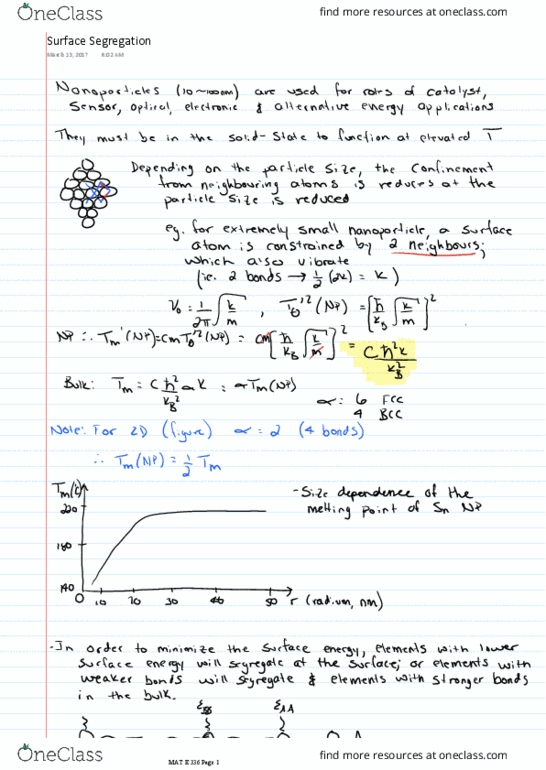 OneClass
find more resources at oneclass.com
Surface Segregation
March 13, 2017 8:02 AM
Nanoparticles (10~100nm) are used for roles of catalyst,
sensor, optical, electronic & alternative energy applications
They must be in the solid-state to function at elevated T
Depending on the particle size, the confinement
from neighbouring atoms is reduces at the
particle size is reduced
eg. for extremely small nanoparticle, a surface
atom is constrained by 2 neighbours;
which also vibrate
(ie. 2 bonds → ½ (2k) = k )
ν₀ = 1/2π √(k/m) , T_θ'² (NP) = [ħ/k_B √(k/m)]²
NP ∴ Tm'(NP) = cm T_θ'²(NP) = cm[ħ/k_B √(k/m)]² = Cħ²k/k_B²
Bulk: Tm = C ħ²/k_B² αk = αTm(NP)
α: 6 FCC
4 BCC
Note: For 2D (figure) α = 2 (4 bonds)
∴ Tm(NP) = ½ Tm
Tm(c)
220
180
140
0 10 20 30 40 50 r (radium, nm)
- Size dependence of the
melting point of Sn NP
- In order to minimize the surface energy, elements with lower
surface energy will segregate at the surface; or elements with
weaker bonds will segregate & elements with stronger bonds
in the bulk.
ε_BB ε_AA
OneClass
MAT E 336 Page 1
find more resources at oneclass.com